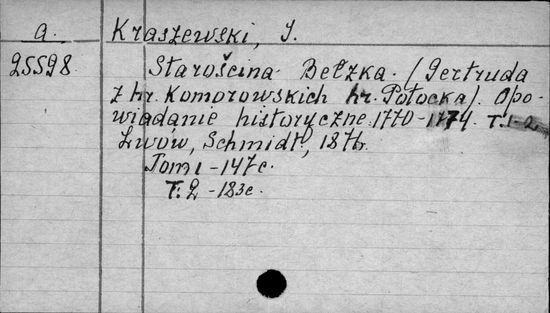 a. Kraszewski, J.
25598. Starościna Bełzka. (Gertruda
z hr. Komorowskich hr. Potocka). Opo-
wiadanie historyczne. 1770-1774. T. 1-2
Lwów, Schmidt,
Tom 1 - 147 c.
T. 2 - 183 c.